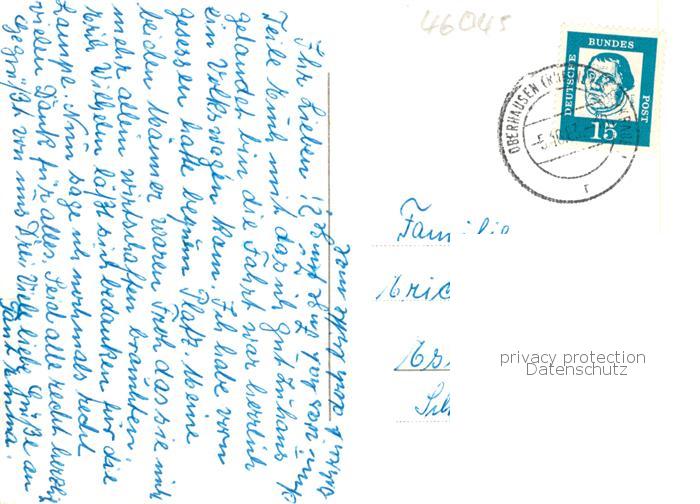 46045
DEUTSCHE
BUNDES
POST
15
OBERHAUSEN
Ihr Lieben!
Teile Euch mit das ich gut Zuhaus
gelandet bin die Fahrt war herrlich
ein Volkswagen kam. Ich habe vorn
gesessen hatte bequem Platz. Meine
beiden Männer waren Froh das sie nicht
mehr allein wirtschaften brauchten
Wilhelm läßt sich bedanken für die
Lampe. Nun sage ich nochmals recht
vielen Dank für alles. Seid alle recht herzlich
gegrüßt von uns Drei viele liebe Grüße an
Familie
Eric
privacy protection
Datenschutz